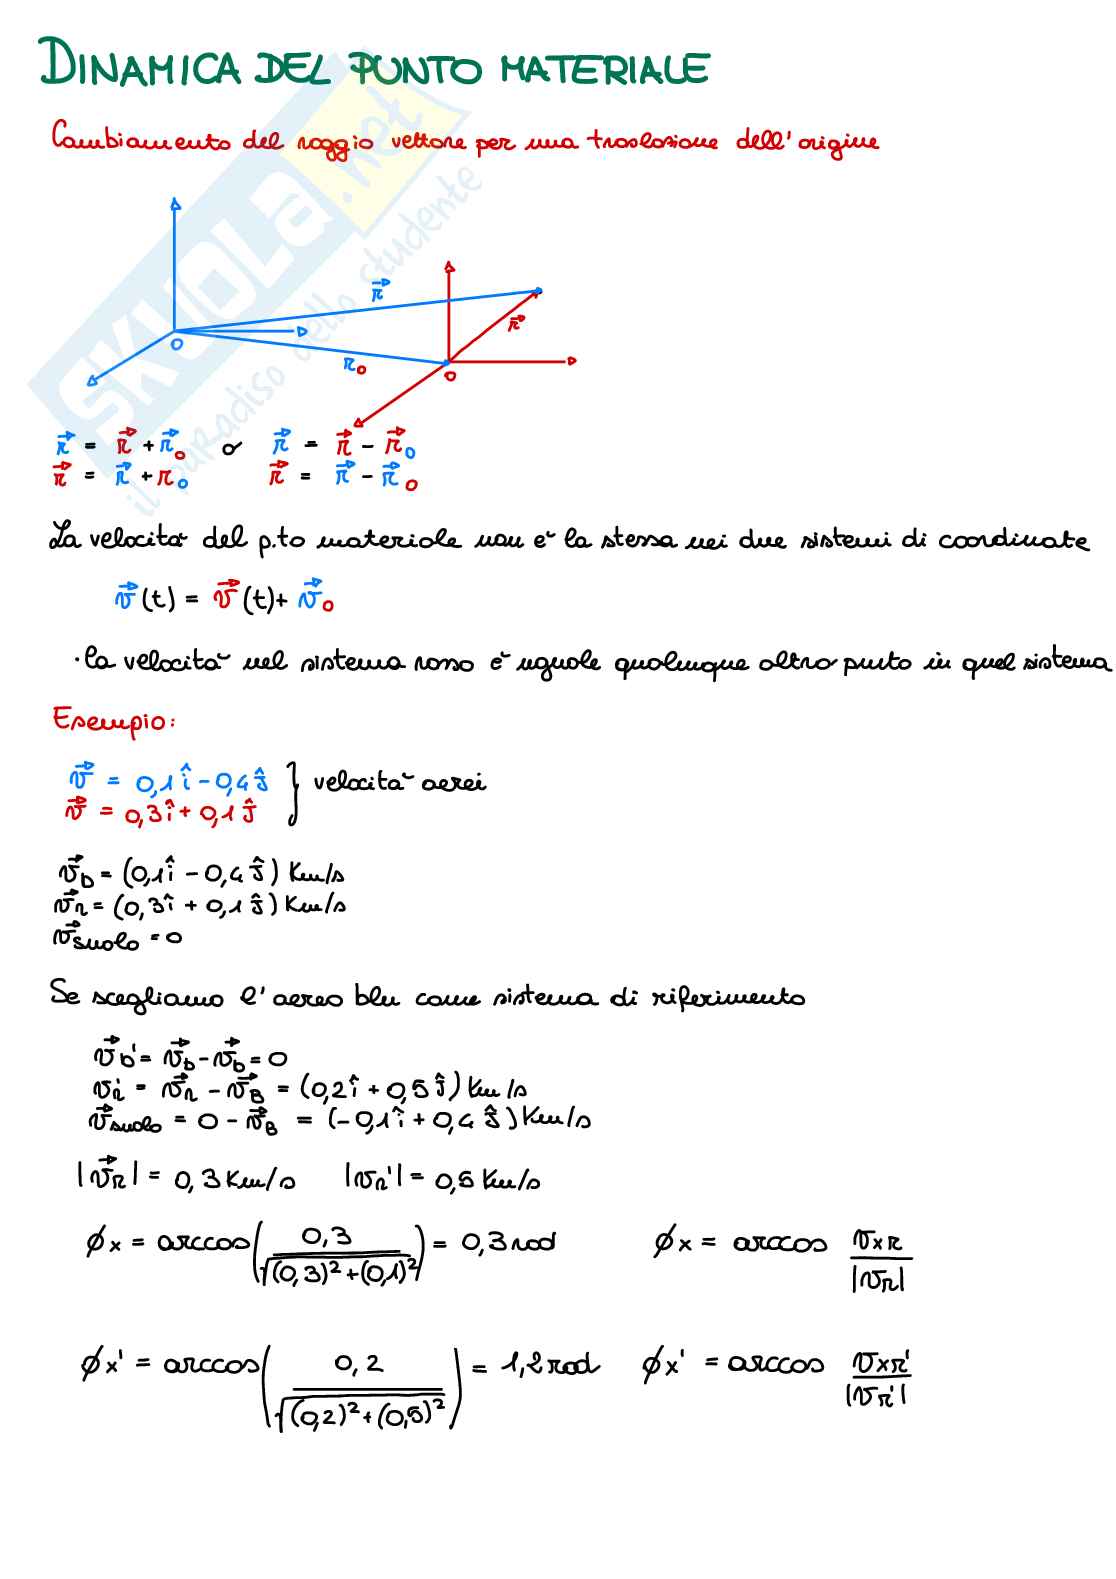 DINAMICA DEL PUNTO MATERIALE
Cambiamento del raggio vettore per una traslazione dell'origine
SKUOLA.net
il paradiso dello studente
r⃗
r⃗
O
r₀
O
r⃗ = r⃗ + r⃗₀ or r⃗ = r⃗ - r⃗₀
r⃗ = r⃗ + r₀ r⃗ = r⃗ - r⃗₀
La velocità del p.to materiale non è la stessa nei due sistemi di coordinate
v⃗(t) = v⃗(t) + v⃗₀
· la velocità nel sistema rosso è uguale qualunque altro punto in quel sistema
Esempio:
v⃗ = 0,1 î - 0,4 ĵ } velocità aerei
v⃗ = 0,3 î + 0,1 ĵ
v⃗b = (0,1 î - 0,4 ĵ) Km/s
v⃗r = (0,3 î + 0,1 ĵ) Km/s
v⃗suolo = 0
Se scegliamo l'aereo blu come sistema di riferimento
v⃗b' = v⃗b - v⃗b = 0
vr' = v⃗r - v⃗B = (0,2 î + 0,5 ĵ) Km/s
v⃗suolo = 0 - v⃗B = (-0,1 î + 0,4 ĵ) Km/s
|v⃗R| = 0,3 Km/s |vr'| = 0,5 Km/s
ϕx = arccos(0,3/√((0,3)²+(0,1)²)) = 0,3 rad ϕx = arccos vxr/|vr|
ϕx' = arccos(0,2/√((0,2)²+(0,5)²)) = 1,2 rad ϕx' = arccos vxr'/|vr'|